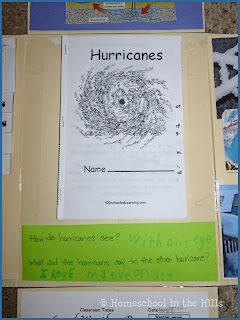 Hurricanes
Name
©EnchantedLearning.com
How do hurricanes see? With one eye
What did the hurricane say to the other hurricane?
I have my eye on you
© Homeschool in the Hills
Classroom Times